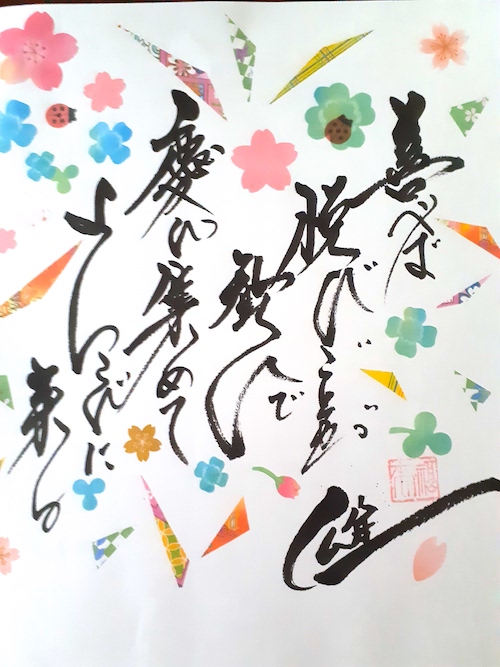 喜べば
悦びごとが
歓んで
慶び集めて
よろこびに
来る